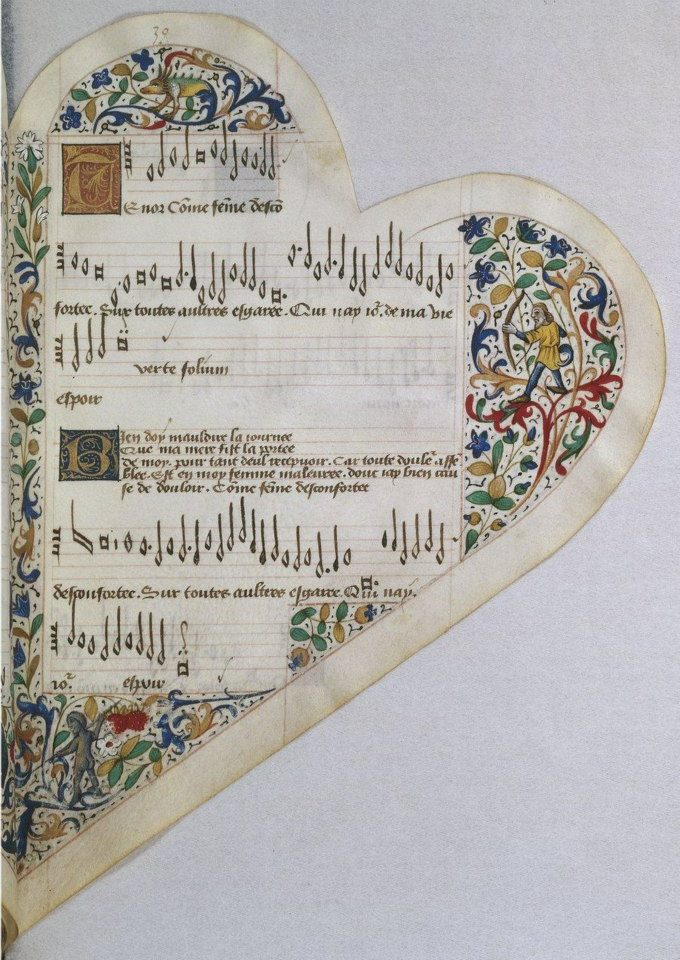 39
Tenor Cõme fẽme descõ
fortee. Sur toutes aultres esgaree. Qui nay ioᵘ. de ma vie
verte folium
espoir
Bien doy mauldire la iournee
Que ma mere fist la portee
de moy. pour tant deul recepuoir. Car toute doulẽ asse
blee. Est en moy femme maleuree. dont iay bien cau
se de douloir. Cõme fẽme desconfortee
desconfortee. Sur toutes aultres esgaree. Qui nay.
ioᵘ. espoir